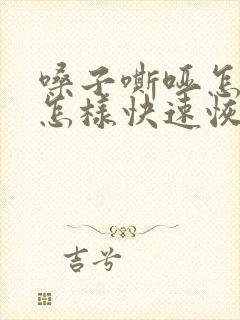 嗓子嘶哑怎
怎样快速恢
吉兮